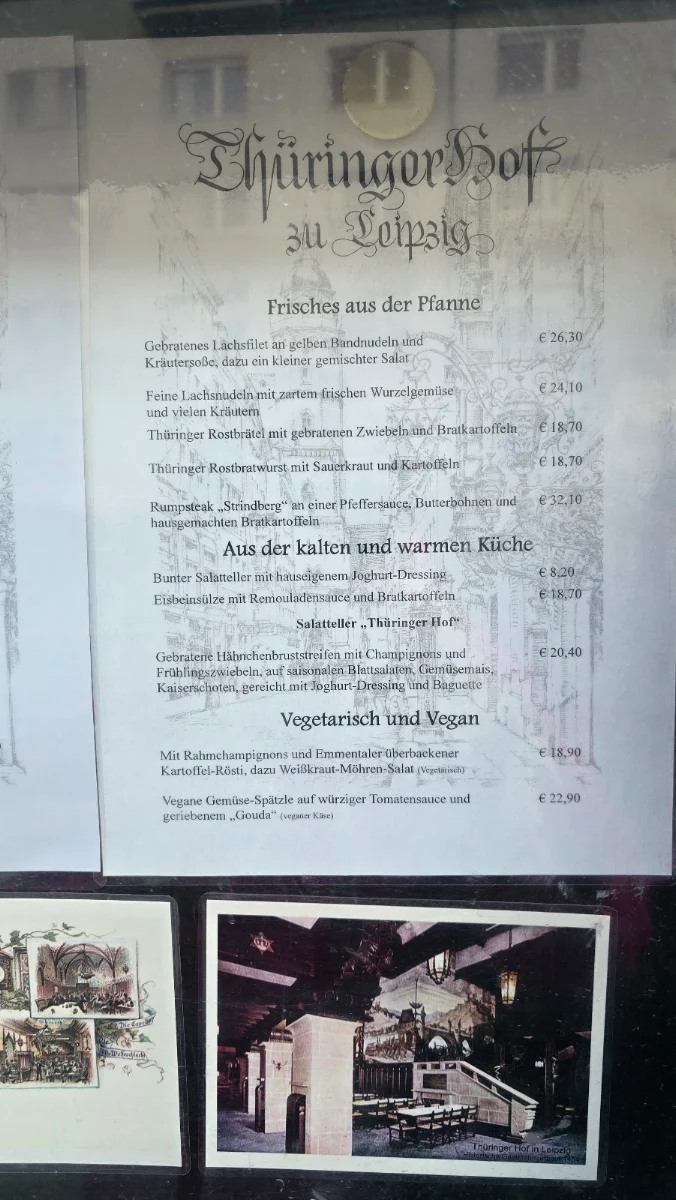 Thüringer Hof
zu Leipzig
Frisches aus der Pfanne
Gebratenes Lachsfilet an gelben Bandnudeln und € 26,30
Kräutersoße, dazu ein kleiner gemischter Salat
Feine Lachsnudeln mit zartem frischen Wurzelgemüse € 24,10
und vielen Kräutern
Thüringer Rostbrätel mit gebratenen Zwiebeln und Bratkartoffeln € 18,70
Thüringer Rostbratwurst mit Sauerkraut und Kartoffeln € 18,70
Rumpsteak „Strindberg“ an einer Pfeffersauce, Butterbohnen und € 32,10
hausgemachten Bratkartoffeln
Aus der kalten und warmen Küche
Bunter Salatteller mit hauseigenem Joghurt-Dressing € 8,20
Eisbeinsülze mit Remouladensauce und Bratkartoffeln € 18,70
Salatteller „Thüringer Hof“
Gebratene Hähnchenbruststreifen mit Champignons und € 20,40
Frühlingszwiebeln, auf saisonalen Blattsalaten, Gemüsemais,
Kaiserschoten, gereicht mit Joghurt-Dressing und Baguette
Vegetarisch und Vegan
Mit Rahmchampignons und Emmentaler überbackener € 18,90
Kartoffel-Rösti, dazu Weißkraut-Möhren-Salat (Vegetarisch)
Vegane Gemüse-Spätzle auf würziger Tomatensauce und € 22,90
geriebenem „Gouda“ (veganer Käse)
Thüringer Hof in Leipzig